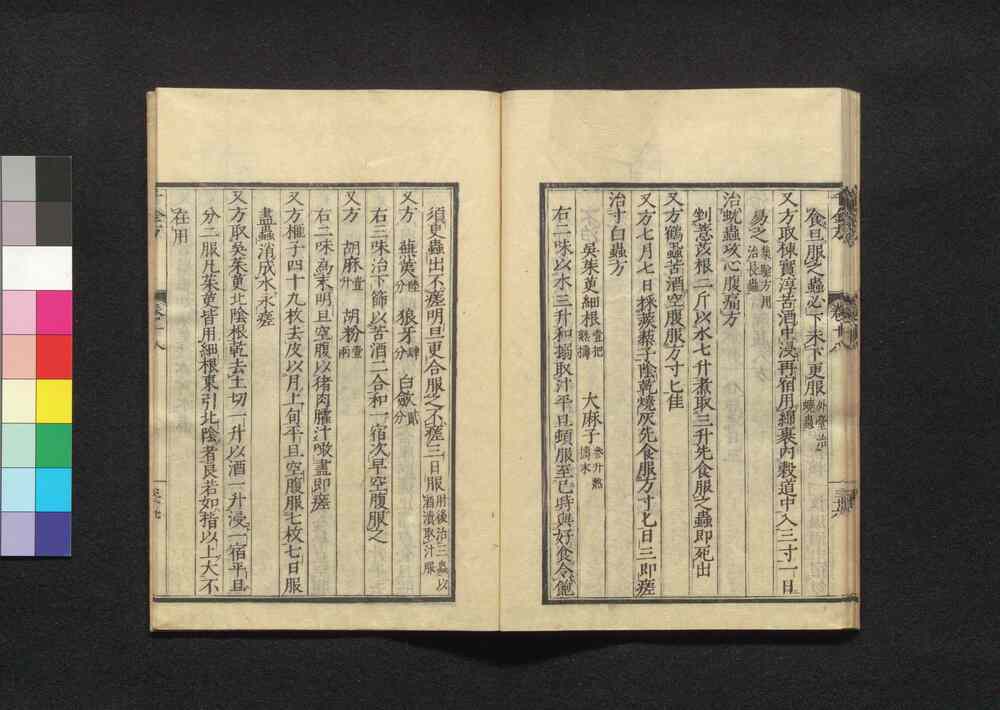 食旦服之蟲必下未下更服外臺治蟯蟲
又方取楝實淳苦酒中浸再宿用綿裹内穀道中入三寸一日
易之集驗方用治長蟲
治蚘蟲攻心腹痛方
剉薏苡根二斤以水七升煮取三升先食服之蟲即死出
又方鶴蝨苦酒空腹服方寸匕佳
又方七月七日採蒺藜子陰乾燒灰先食服方寸匕日三即瘥
治寸白蟲方
吳茱萸細根壹把熟擣 大麻子参升熬擣末
右二味以水三升和搦取汁平旦頓服至巳時與好食令飽
須臾蟲出不瘥明旦更合服之不瘥三日服肘後治三蟲以酒漬取汁服
又方 蕪荑陸分 狼牙肆分 白斂貳分
右三味治下篩以苦酒二合和一宿次早空腹服之
又方 胡麻壹升 胡粉壹兩
右二味為末明旦空腹以猪肉臛汁噉盡即瘥
又方榧子四十九枚去皮以月上旬平旦空腹服七枚七日服
盡蟲消成水永瘥
又方取吳茱萸北陰根乾去土切一升以酒一升浸一宿平旦
分二服凡茱萸皆用細根東引北陰者良若如指以上大不
在用